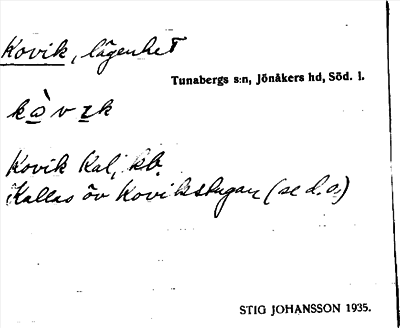 Kovik, lägenhet
Tunabergs s:n, Jönåkers hd, Söd. l.
kòvɪk
Kovik Kal, kb.
Kallas öv Kovikstugan (se d.o.)
STIG JOHANSSON 1935.